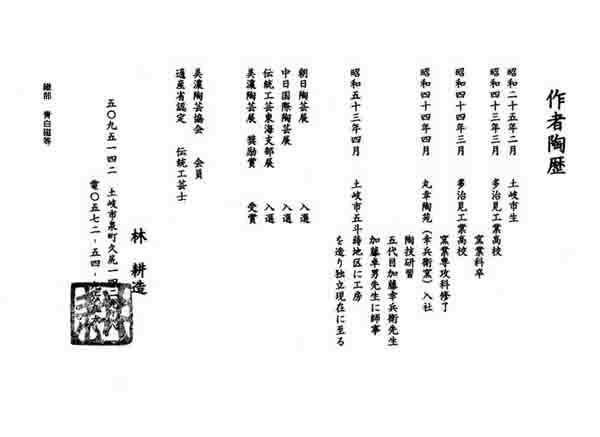 作者陶歴
昭和二十五年二月　土岐市生
昭和四十三年三月　多治見工業高校
窯業科卒
昭和四十四年三月　多治見工業高校
窯業専攻科修了
昭和四十四年四月　丸幸陶苑（幸兵衛窯）入社
陶技研習
五代目加藤幸兵衛先生
加藤卓男先生に師事
昭和五十三年四月　土岐市五斗蒔地区に工房
を造り独立現在に至る
朝日陶芸展　入選
中日国際陶芸展　入選
伝統工芸東海支部展　入選
美濃陶芸展　奨励賞　受賞
美濃陶芸協会　会員
通産省認定　伝統工芸士
林　耕造
五〇九五一四二　土岐市泉町久尻一四二
電〇五七二-五四-
織部　青白磁等